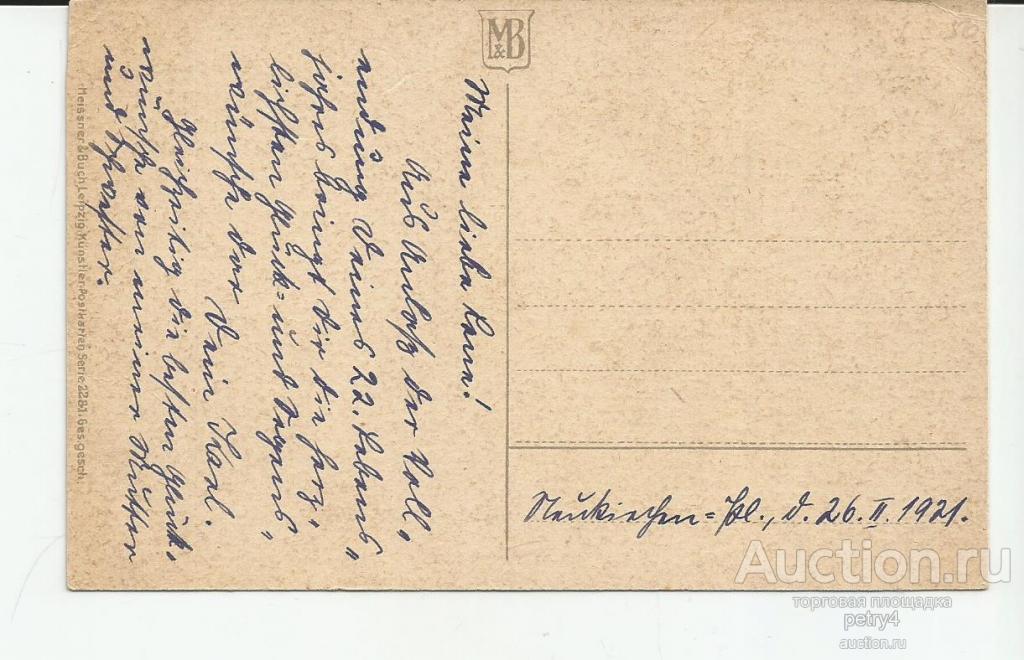 M&B
Meine liebe Lene!
Aus Anlaß der Voll-
endung Deines 22. Lebens-
jahres bringt Dir die herz-
lichsten Glück- und Segens-
wünsche dar Dein Karl.
Gleichzeitig die besten Glück-
wünsche von meiner Mutter
und Schwester.
Meissner & Buch, Leipzig. Künstler-Postkarten Serie 2281. Ges. gesch.
Neukirchen=Pl., d. 26. II. 1921.
Auction.ru
торговая площадка
petry4
auction.ru